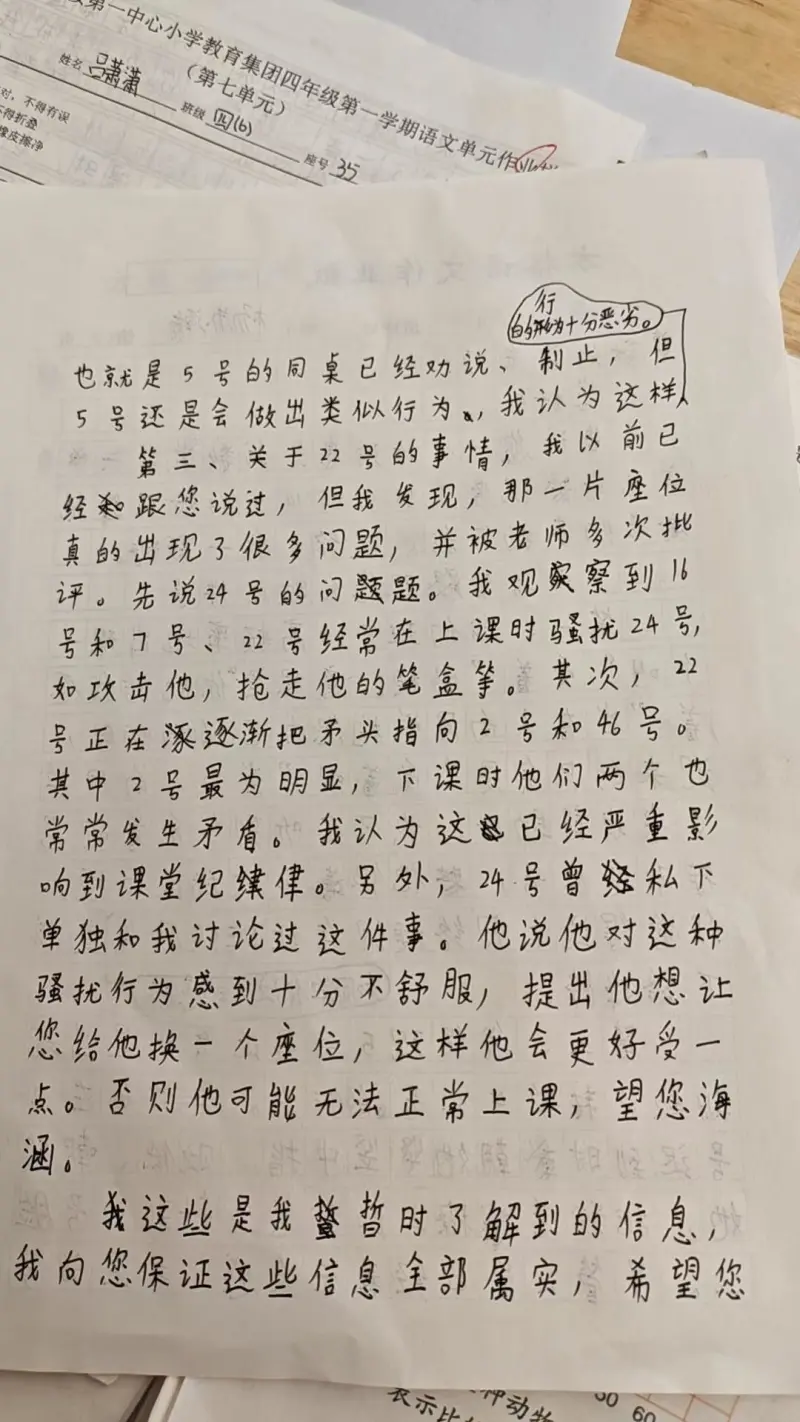 第一中心小学教育集团四年级第一学期语文单元作业
(第七单元)
姓名 吕潇潇 班级 四(6) 座号 35
对,不得有误
不得折叠
橡皮擦净
行
的行为十分恶劣。
也就是5号的同桌已经劝说、制止,但
5号还是会做出类似行为,我认为这样
第三、关于22号的事情,我以前已
经跟您说过,但我发现,那一片座位
真的出现了很多问题,并被老师多次批
评。先说24号的问题。我观察到16
号和7号、22号经常在上课时骚扰24号,
如攻击他,抢走他的笔盒等。其次,22
号正在逐渐把矛头指向2号和46号。
其中2号最为明显,下课时他们两个也
常常发生矛盾。我认为这已经严重影
响到课堂纪律。另外,24号曾私下
单独和我讨论过这件事。他说他对这种
骚扰行为感到十分不舒服,提出他想让
您给他换一个座位,这样他会更好受一
点。否则他可能无法正常上课,望您海
涵。
我这些是我暂时了解到的信息,
我向您保证这些信息全部属实,希望您
种动物
表示比
50 60